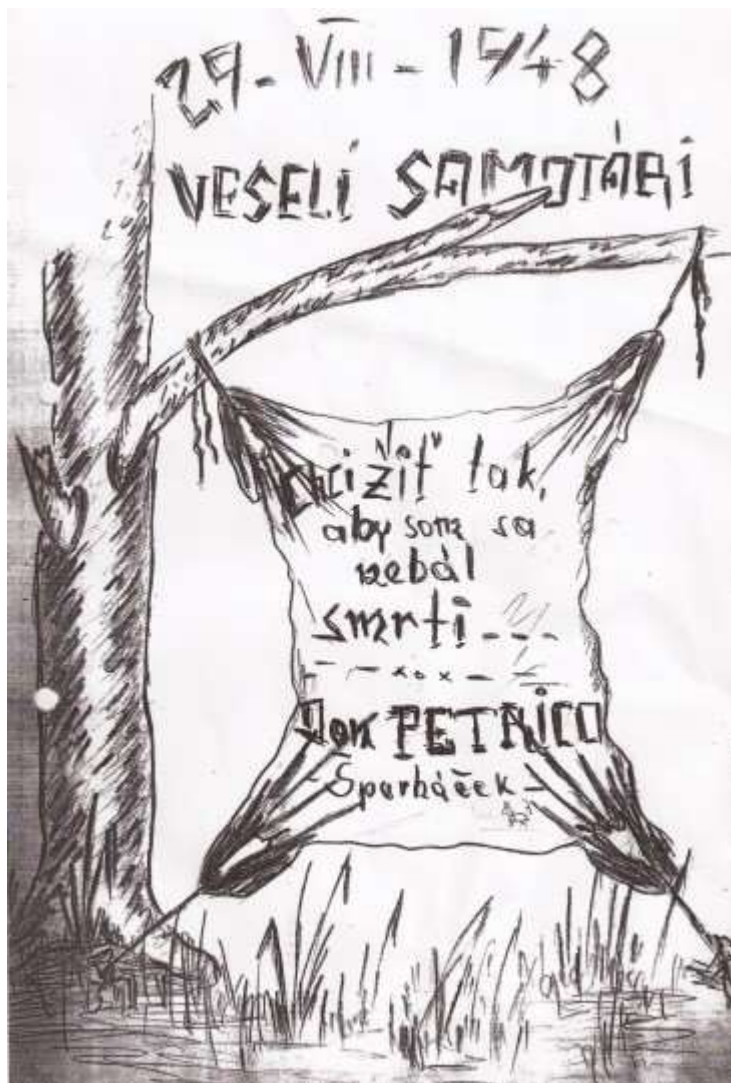 29 - VIII - 1948
VESELÍ SAMOTÁRI
Chci žiť tak,
aby som sa
nebál
smrti - - -
Don PETRICO
- Sparháček -